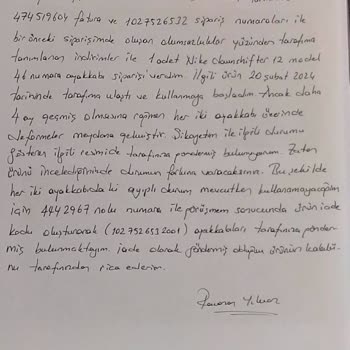 474519604 fatura ve 1027526532 sipariş numaraları ile
bir önceki siparişimde oluşan olumsuzluklar yüzünden tarafıma
tanımlanan indirimler ile 1 adet Nike Downshifter 12 model
46 numara ayakkabı siparişi verdim. İlgili ürün 20 şubat 2024
tarihinde tarafıma ulaştı ve kullanmaya başladım. Ancak daha
4 ay geçmiş olmasına rağmen her iki ayakkabı üzerinde
deformeler meydana gelmiştir. Şikayetim ile ilgili durumu
gösteren ilgili resmide tarafınıza göndermiş bulunuyorum. Zaten
ürünü incelediğinizde durumun farkına varacaksınız. Bu şekilde
her iki ayakkabıdaki ayıplı durum mevcutken kullanamayacağım
için 4442967 nolu numara ile görüşmem sonucunda ürün iade
kodu oluşturarak (1027526532001) ayakkabıları tarafınıza gönder-
miş bulunmaktayım. iade olarak göndermiş olduğum ürünün kabulü-
nü tarafınızdan rica ederim.
Yılmaz